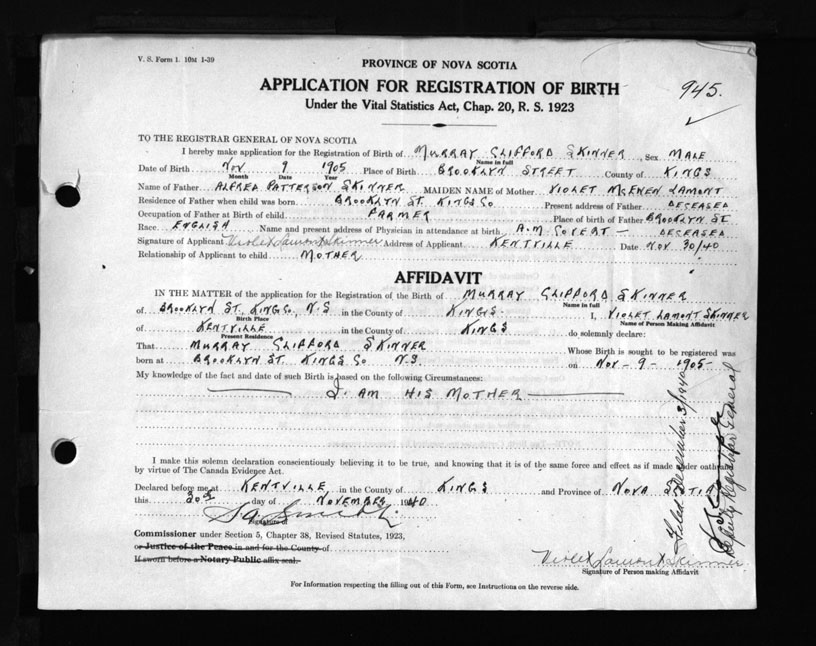 V. S. Form 1. 10M 1-39
PROVINCE OF NOVA SCOTIA
APPLICATION FOR REGISTRATION OF BIRTH
945.
Under the Vital Statistics Act, Chap. 20, R. S. 1923
TO THE REGISTRAR GENERAL OF NOVA SCOTIA
I hereby make application for the Registration of Birth of MURRAY CLIFFORD SKINNER, Sex MALE
Name in full
Date of Birth NOV 9 1905 Place of Birth BROOKLYN STREET County of KINGS
Month Date Year
Name of Father ALFRED PATTERSON SKINNER MAIDEN NAME of Mother VIOLET MCEWEN LAMONT
Residence of Father when child was born. BROOKLYN ST. KINGS CO Present address of Father DECEASED
Occupation of Father at Birth of child FARMER Place of birth of Father BROOKLYN ST
Race. ENGLISH Name and present address of Physician in attendance at birth A.M COVERT — DECEASED
Signature of Applicant Violet Lamont Skinner Address of Applicant KENTVILLE Date NOV 30/40
Relationship of Applicant to child MOTHER
AFFIDAVIT
IN THE MATTER of the application for the Registration of the Birth of MURRAY CLIFFORD SKINNER
Name in full
of BROOKLYN ST. KINGS CO, N.S in the County of KINGS I, VIOLET LAMONT SKINNER
Birth Place Name of Person Making Affidavit
of KENTVILLE in the County of KINGS do solemnly declare:
Present Residence
That MURRAY CLIFFORD SKINNER Whose Birth is sought to be registered was
born at BROOKLYN ST. KINGS CO N.S. on NOV - 9 - 1905-
My knowledge of the fact and date of such Birth is based on the following Circumstances:
I AM HIS MOTHER
I make this solemn declaration conscientiously believing it to be true, and knowing that it is of the same force and effect as if made under oath and
by virtue of The Canada Evidence Act.
Declared before me at KENTVILLE in the County of KINGS and Province of NOVA SCOTIA
this 30th day of NOVEMBER 1940
Signature of
Commissioner under Section 5, Chapter 38, Revised Statutes, 1923,
or Justice of the Peace in and for the County of
If sworn before a Notary Public affix seal.
Violet Lamont Skinner
Signature of Person making Affidavit
For Information respecting the filling out of this Form, see Instructions on the reverse side.
Filed December 3/1940
Deputy Registrar General